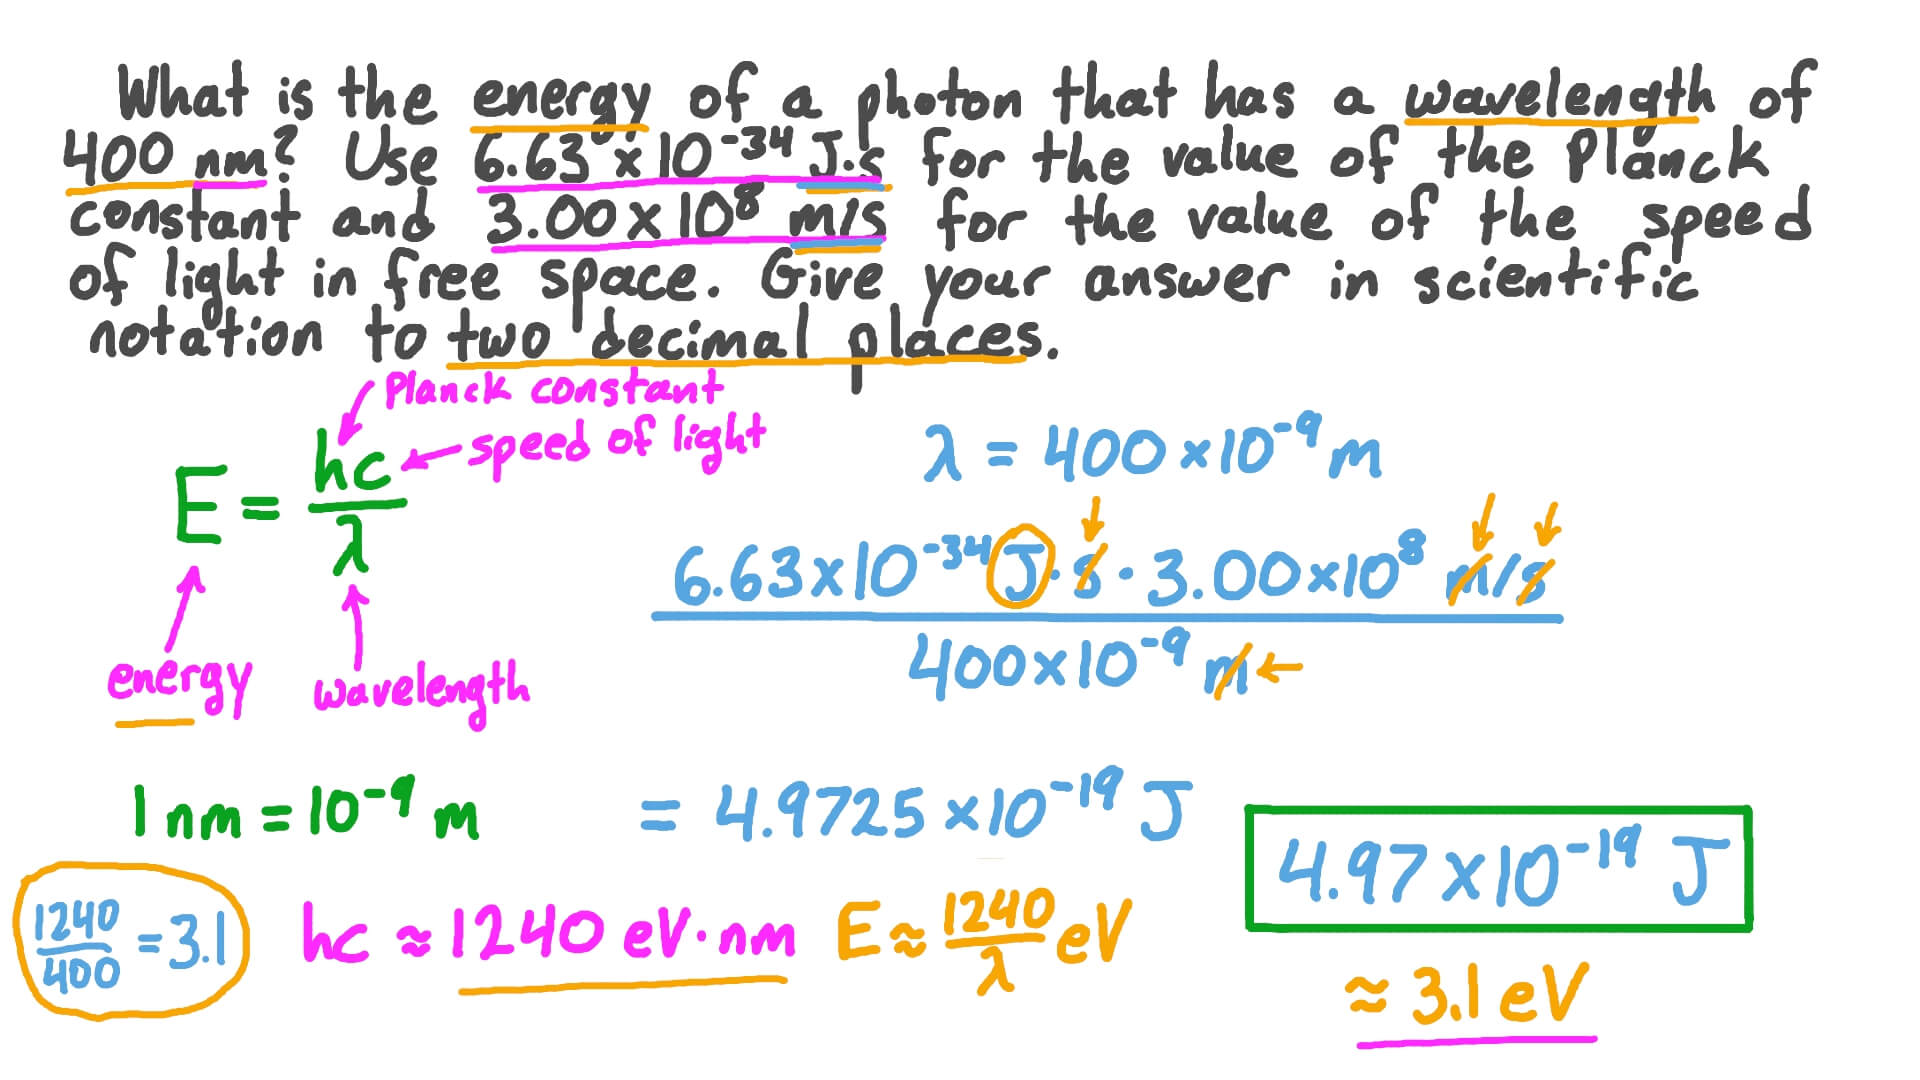 What is the energy of a photon that has a wavelength of
400 nm? Use 6.63 × 10⁻³⁴ J·s for the value of the Planck
constant and 3.00 × 10⁸ m/s for the value of the speed
of light in free space. Give your answer in scientific
notation to two decimal places.
Planck constant
speed of light
E = hc/λ
energy
wavelength
λ = 400 × 10⁻⁹ m
6.63 × 10⁻³⁴ J·s · 3.00 × 10⁸ m/s
400 × 10⁻⁹ m
1 nm = 10⁻⁹ m
= 4.9725 × 10⁻¹⁹ J
4.97 × 10⁻¹⁹ J
1240/400 = 3.1
hc ≈ 1240 eV·nm
E ≈ 1240/λ eV
≈ 3.1 eV